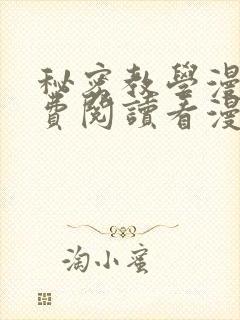 秘密教學漫
費閱讀看漫
淘小蜜